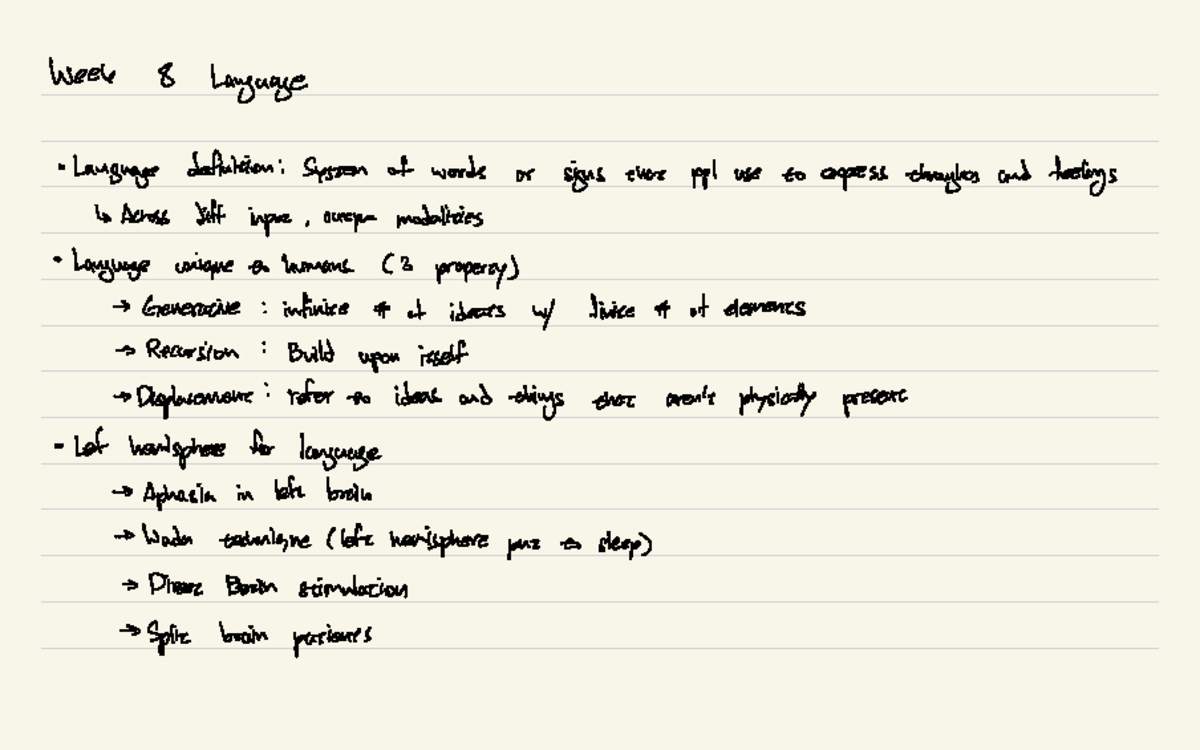 Week 8 Language
• Language definition: System of words or signs that ppl use to express thoughts and feelings
↳ Across diff input, output modalities
• Language unique to humans (3 property)
→ Generative : infinite # of ideas w/ finite # of elements
→ Recursion : Build upon itself
→ Displacement : refer to ideas and things that aren't physically present
- Left hemisphere for language
→ Aphasia in left brain
→ Wada technique (left hemisphere put to sleep)
→ Direct Brain stimulation
→ Split brain patients